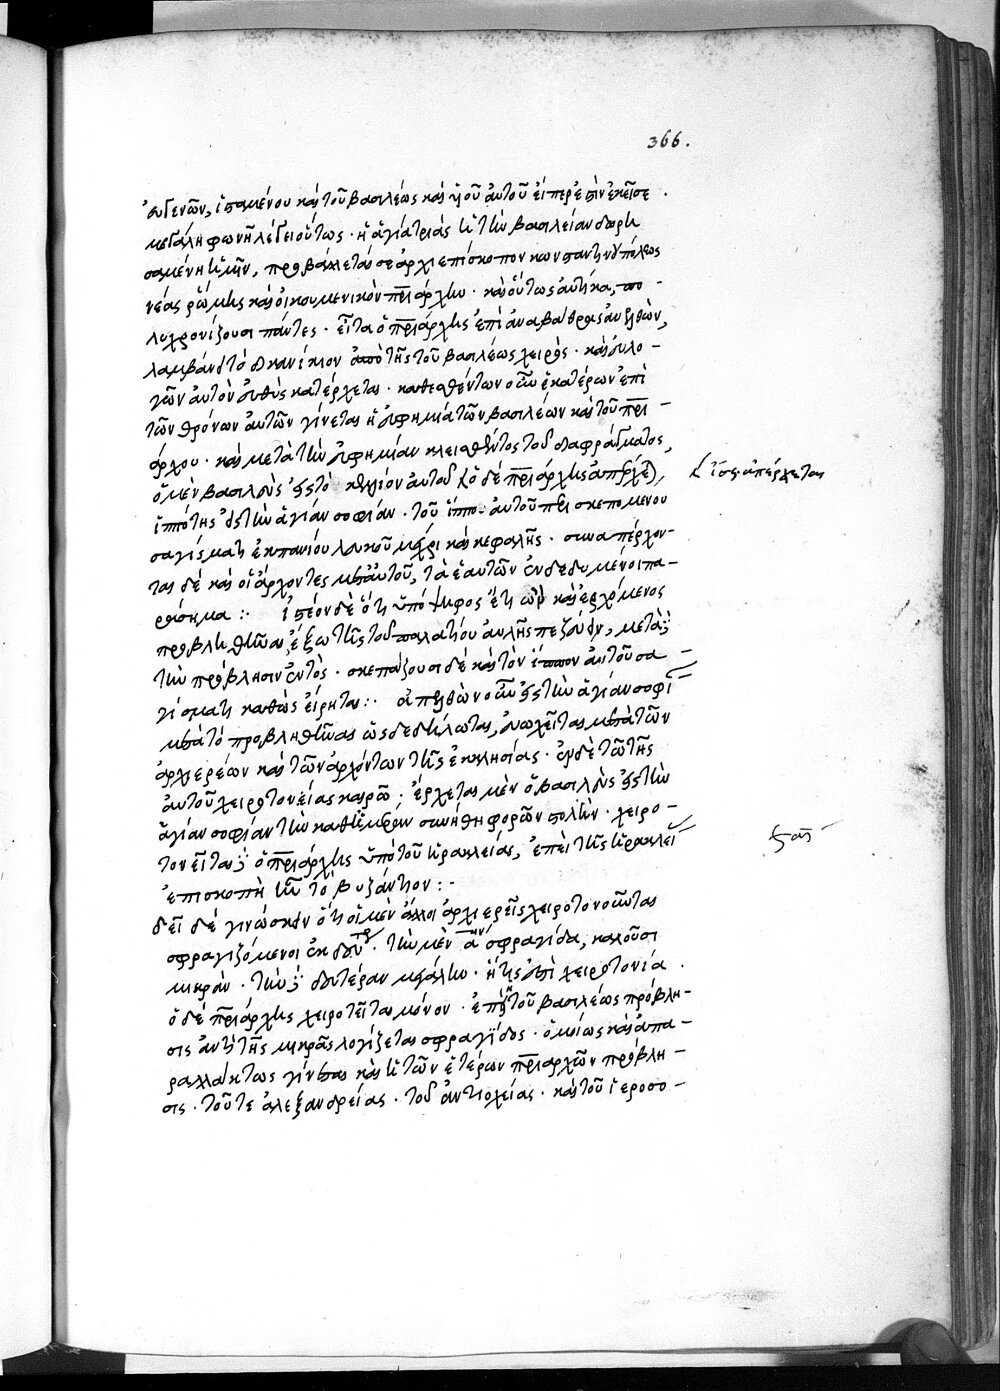 366.
εὐγενῶν, ἱσταμένου καὶ τοῦ βασιλέως καὶ υἱοῦ αὐτοῦ εἴπερ ἐστὶν ἐκεῖσε.
μεγάλῃ φωνῇ λέγει οὕτως· ἡ ἁγία τριὰς ἡ τὴν βασιλείαν δωρη
σαμένη ἡμῖν, προβάλλεταί σε ἀρχιεπίσκοπον κωνσταντινουπόλεως
νέας ῥώμης καὶ οἰκουμενικὸν πατριάρχην· καὶ οὕτως αὐτίκα, πο-
λυχρονίζουσι πάντες· εἶτα ὁ πατριάρχης ἐπὶ ἀναβάθρας ἀνελθὼν,
λαμβάνει τὸ δικανίκιον ἀπὸ τῆς τοῦ βασιλέως χειρός· καὶ εὐλο-
γῶν αὐτὸν εὐθὺς κατέρχεται· καθεσθέντων οὖν ἑκατέρων ἐπὶ
τῶν θρόνων αὐτῶν γίνεται ἡ εὐφημία τῶν βασιλέων καὶ τοῦ πατρι-
άρχου· καὶ μετὰ τὴν εὐφημίαν κλεισθέντος τοῦ διαφράγματος,
ὁ μὲν βασιλεὺς εἰς τὸ κελλίον αὐτοῦ ὁ δὲ πατριάρχης ἀπέρχεται, εἴσω ἀπέρχεται
ἱππότης εἰς τὴν ἁγίαν σοφίαν· τοῦ ἵππου αὐτοῦ περισκεπομένου
σαγίσματι ἐκ πανίου λευκοῦ μέχρι καὶ κεφαλῆς· συναπέρχον-
ται δὲ καὶ οἱ ἄρχοντες μετ' αὐτοῦ, τὰ ἑαυτῶν ἐνδεδυμένοι πα-
ράσημα :· ἰστέον δὲ ὅτι ὑποψήφιος ἔτι ὢν καὶ ἐρχόμενος
προβληθῆναι, ἔξω τῆς τοῦ παλατίου αὐλῆς πεζεύει, μετὰ δὲ
τὴν πρόβλησιν ἐντός· σκεπάζουσι δὲ καὶ τὸν ἵππον αὐτοῦ σα-
γίσματι καθὼς εἴρηται :· ἀπελθὼν οὖν εἰς τὴν ἁγίαν σοφίαν
μετὰ τὸ προβληθῆναι ὡς δεδήλωται, εὐωχεῖται μετὰ τῶν
ἀρχιερέων καὶ τῶν ἀρχόντων τῆς ἐκκλησίας· ἐν δὲ τῷ τῆς
αὐτοῦ χειροτονείας καιρῷ; ἔρχεται μὲν ὁ βασιλεὺς εἰς τὴν
ἁγίαν σοφίαν τὴν καθημερινὴν συνήθη φορῶν στολήν· χειρο-
τονεῖται δὲ ὁ πατριάρχης ὑπὸ τοῦ ἡρακλείας, ἐπεὶ τῆς ἡρακλείας
ἐπισκοπὴ ἦν τὸ βυζάντιον :·
δεῖ δὲ γινώσκειν ὅτι οἱ μὲν ἄλλοι ἀρχιερεῖς χειροτονοῦνται
σφραγιζόμενοι ἐκ δευτέρου· τὴν μὲν αην σφραγίδα, καλοῦσι
μικράν· τὴν δὲ δευτέραν μεγάλην· ἥτις ἐστὶ χειροτονία.
ὁ δὲ πατριάρχης χειροτονεῖται μόνον· ἐπεὶ ἡ τοῦ βασιλέως πρόβλη-
σις ἀντὶ τῆς μικρᾶς λογίζεται σφραγῖδος· ὁμοίως καὶ ἀπα-
ραλλάκτως γίνεται καὶ ἡ τῶν ἑτέρων πατριαρχῶν πρόβλη-
σις· τοῦ τε ἀλεξανδρείας· τοῦ ἀντιοχείας· καὶ τοῦ ἱεροσο-